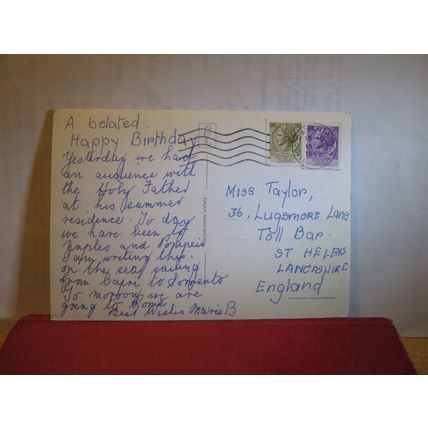 A belated
Happy Birthday
Yesterday we had
an audience with
the Holy Father
at his summer
residence. To day
we have been to
Naples and Pompeii
I am writing this
on the sea sailing
from Capri to Sorrento
To morrow we are
going to Rome
Best Wishes Marie B
Miss Taylor,
36, Lugsmore Lane
Toll Bar.
ST HELENS
LANCASHIRE
England